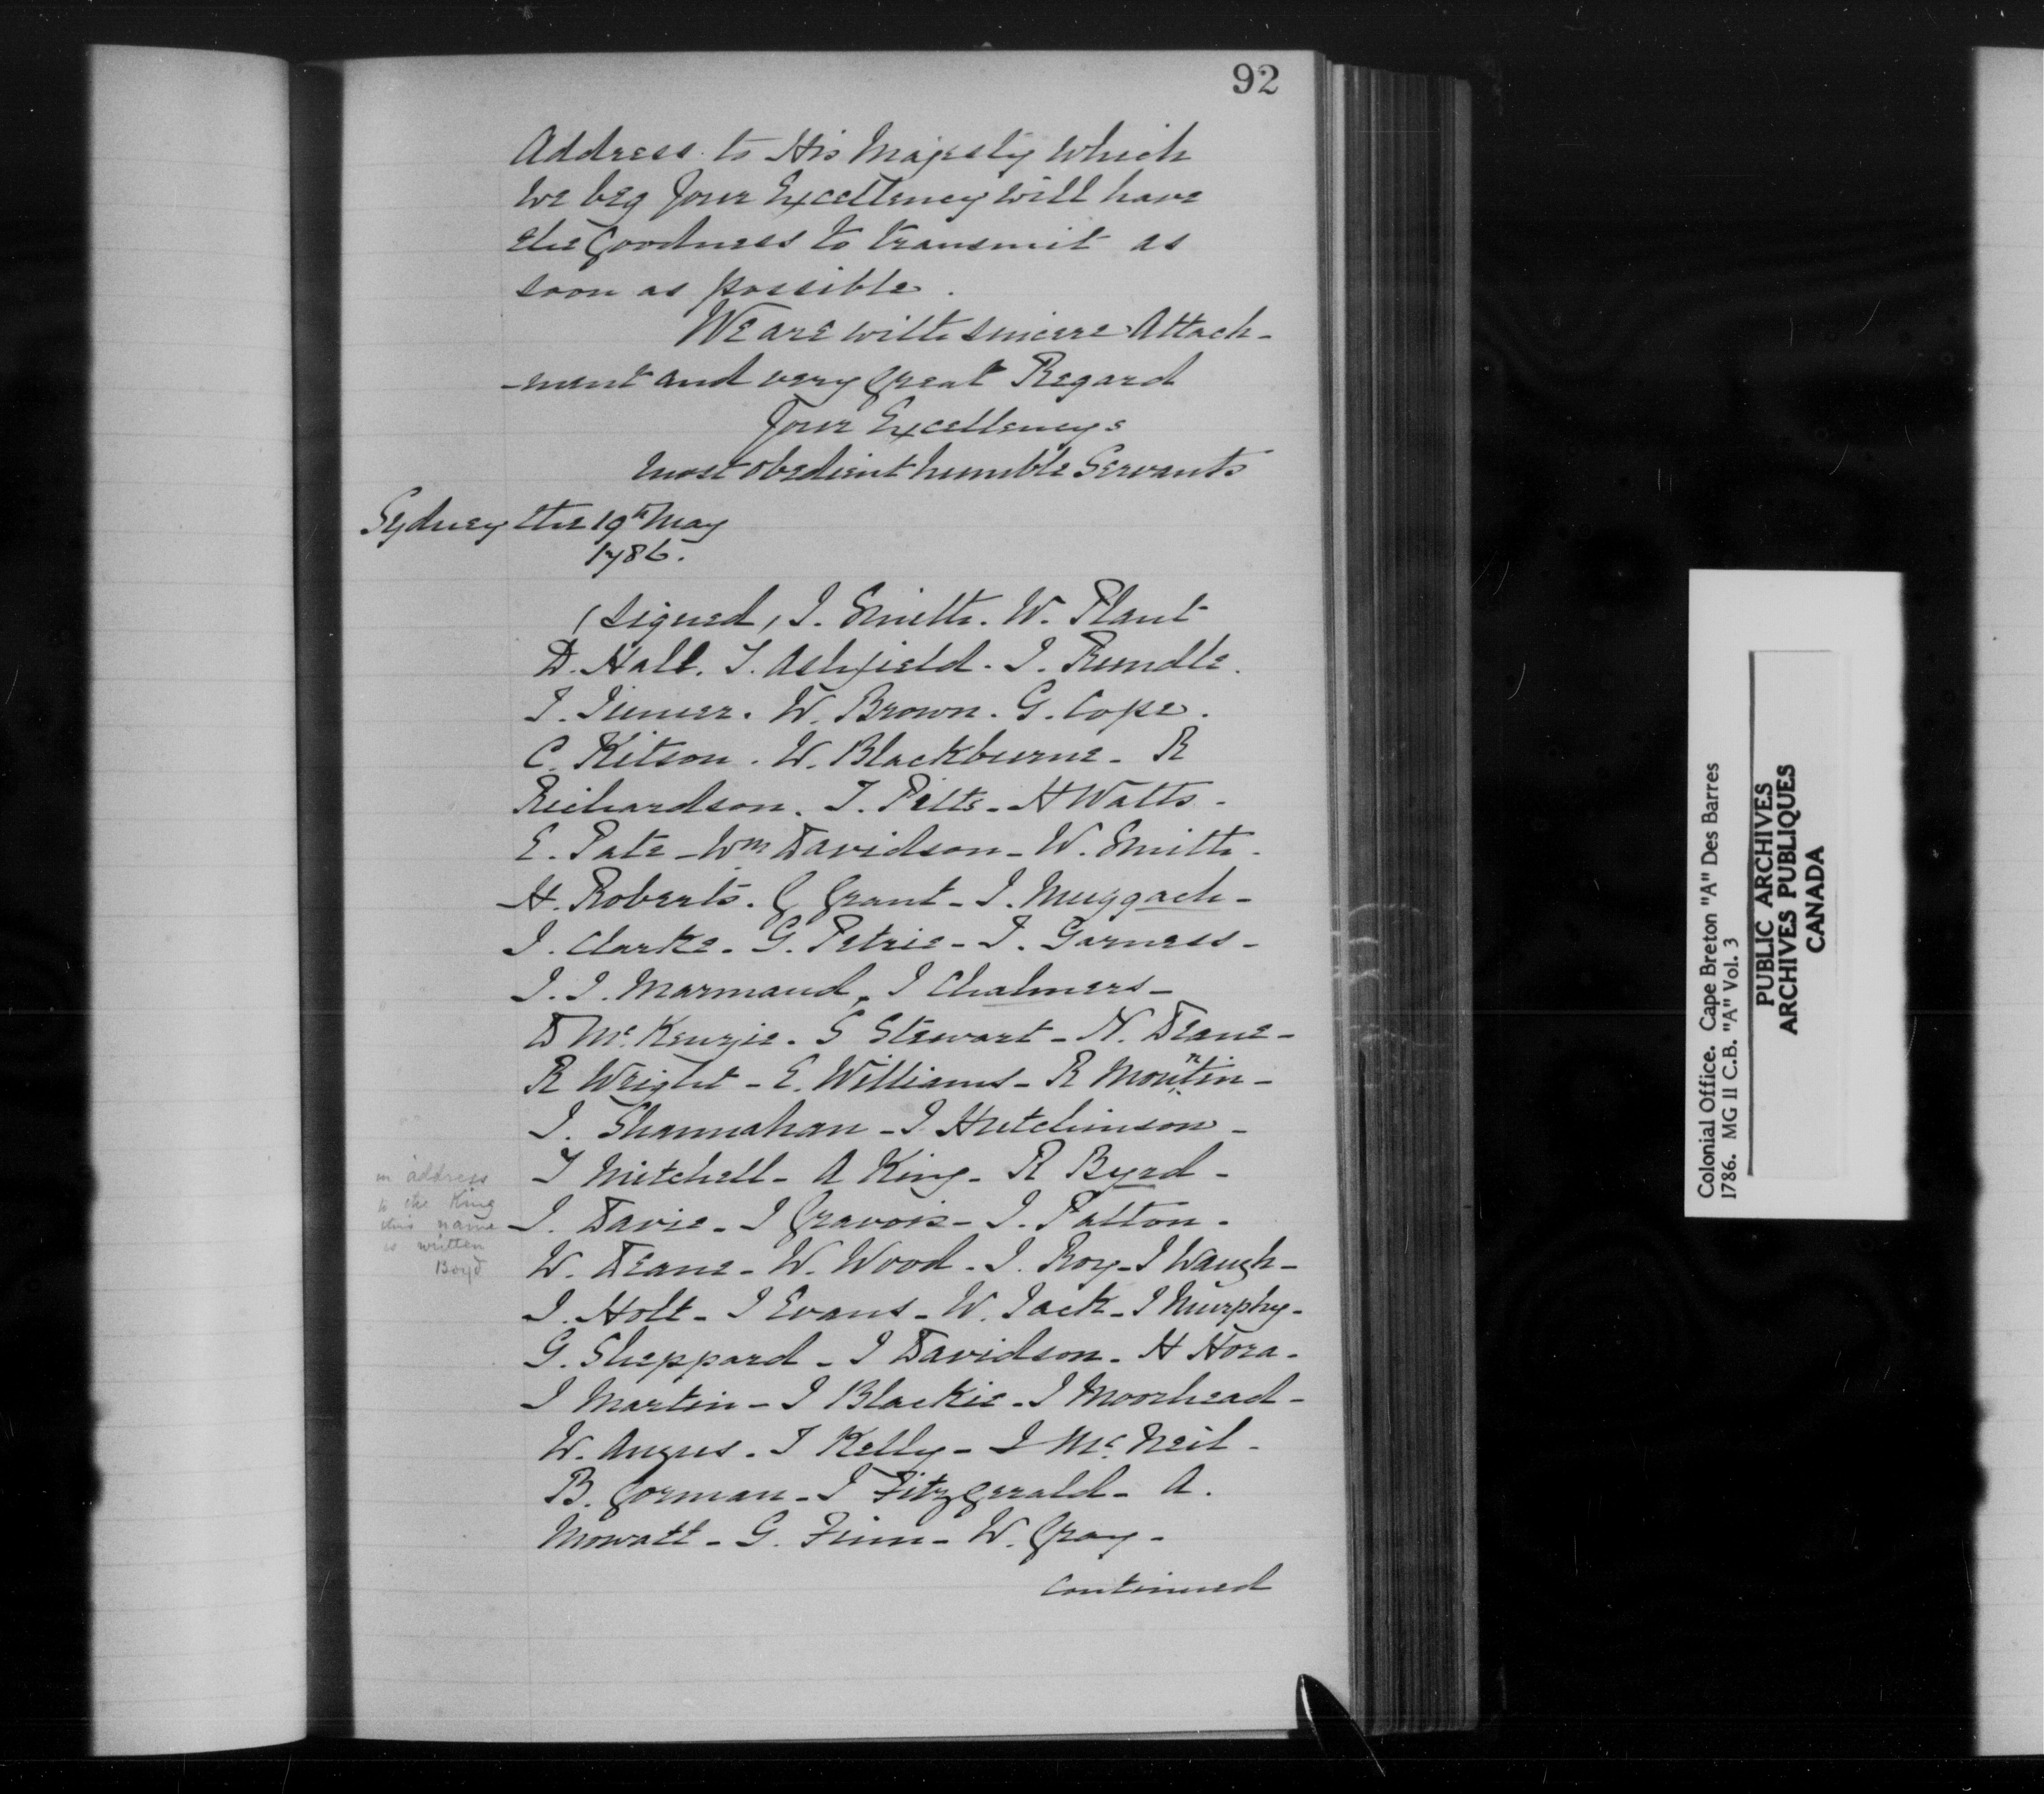 92
Address to His Majesty which
we beg Your Excellency will have
the Goodness to transmit as
soon as possible.
We are with sincere Attach-
-ment and very Great Regard
Your Excellencys
most obedient humble Servants
Sydney the 19th May
1786.
(Signed) I. Smith. W. Plant
D. Hall. T. Ashfield. I. Rundle.
I. W. Brown. G. Cope.
C. Kitson. W. Blackburne - R
Richardson. T. Pitts - H Watts -
E. Pate - Wm Davidson - W. Smith -
H. Roberts. G Grant - I. Muggach -
I. Clarke - G. Petrie - I. Garness -
I. I. Marmaud, I Chalmers -
D McKenzie. S Stewart - N. Deane -
R Wright - E. Williams - R -
I. Shannahan - I Hutchinson -
T Mitchell - A King - R Byrd -
I. Davie - I Gravois - I. Patton -
W. Deane - W. Wood - I. Roy - I Waugh -
I. Holt - I Evans - W. Jack - I Murphy -
G. Sheppard - I Davidson - H Hora -
I Martin - I Blackie - I Moorhead -
W. Angus - T Kelly - I McNeil -
B. Gorman - I Fitzgerald - A.
Mowatt - G. Finn - W. Gray -
continued
in address
to the King
this name
is written
Boyd
Colonial Office. Cape Breton "A" Des Barres
1786. MG 11 C.B. "A" Vol. 3
PUBLIC ARCHIVES
ARCHIVES PUBLIQUES
CANADA